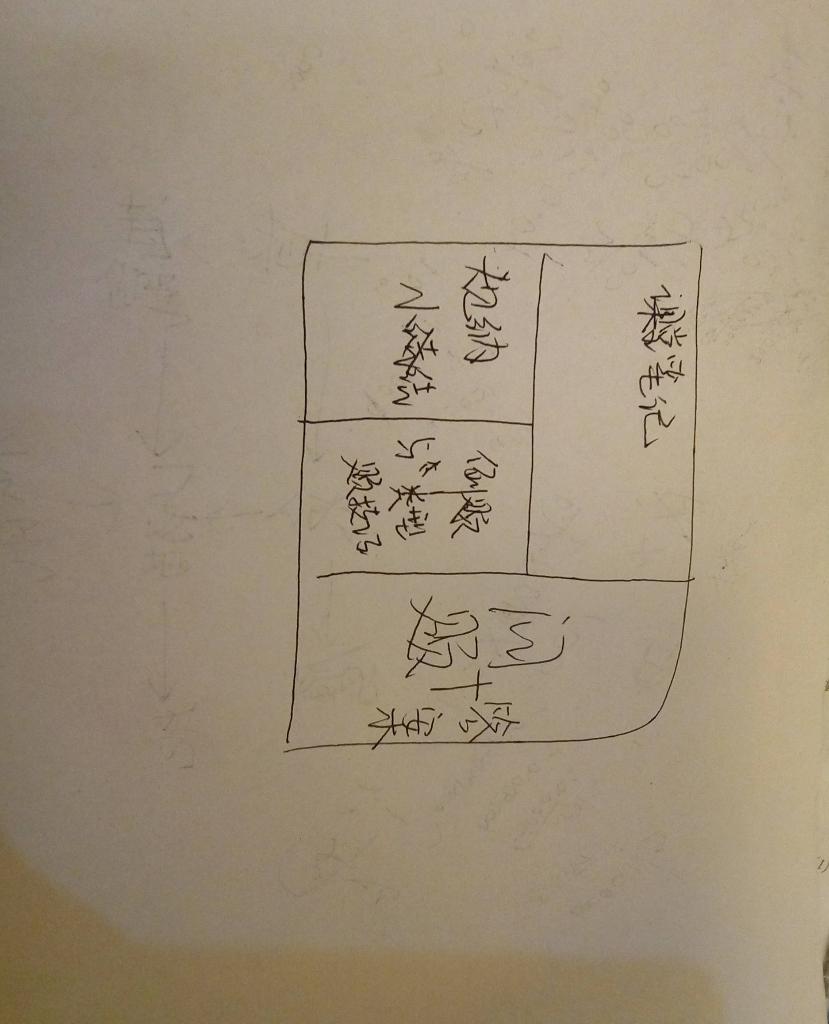 课堂笔记
纳
小结
例题
与类型
题技巧
问题
+
答案